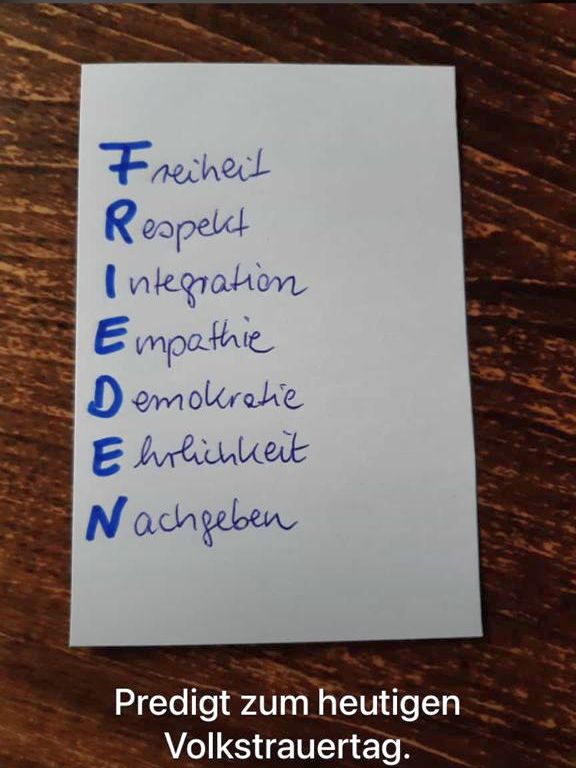 Freiheit
Respekt
Integration
Empathie
Demokratie
Ehrlichkeit
Nachgeben
Predigt zum heutigen
Volkstrauertag.